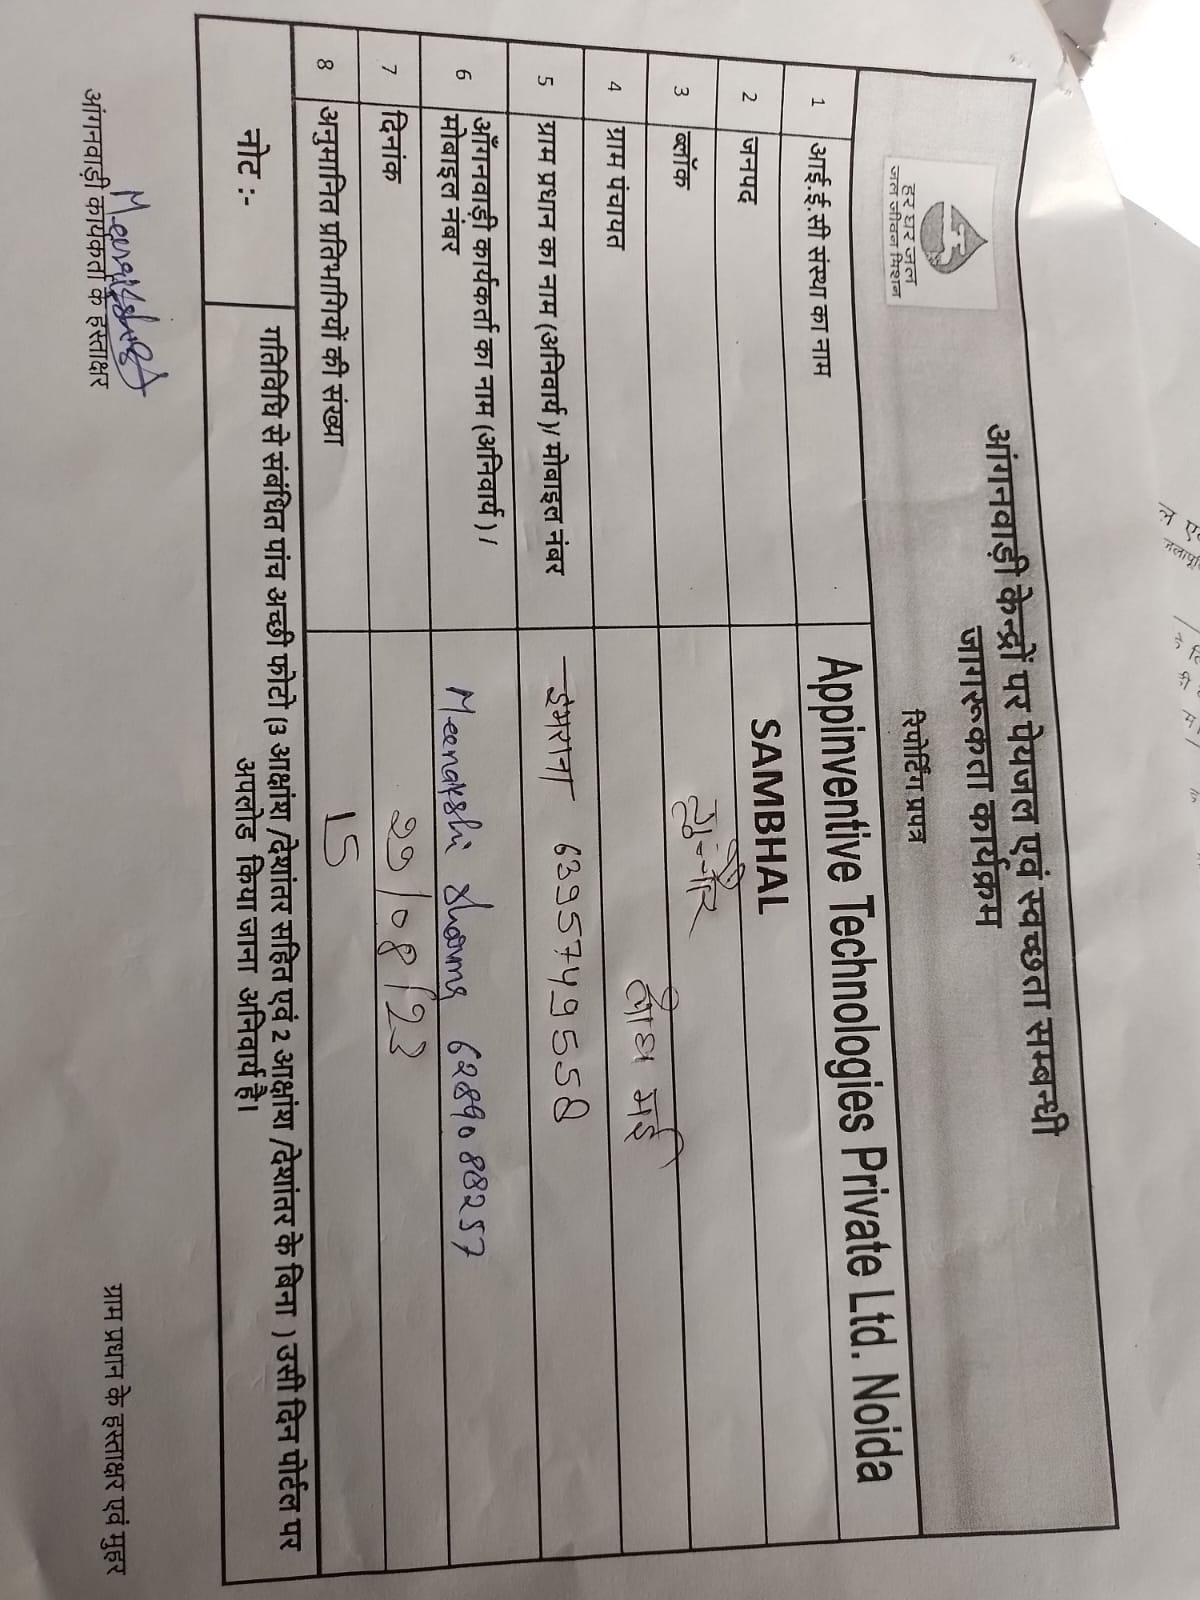 हर घर जल
जल जीवन मिशन
आंगनवाड़ी केन्द्रों पर पेयजल एवं स्वच्छता सम्बन्धी
जागरूकता कार्यक्रम
रिपोर्टिंग प्रपत्र
1 आई.ई.सी संस्था का नाम Appinventive Technologies Private Ltd. Noida
2 जनपद SAMBHAL
3 ब्लॉक
4 ग्राम पंचायत
5 ग्राम प्रधान का नाम (अनिवार्य)/ मोबाइल नंबर इमराना 6395749558
6 आँगनवाड़ी कार्यकर्ता का नाम (अनिवार्य) / Meenakshi Sharma 6289088257
मोबाइल नंबर
7 दिनांक 29/08/23
8 अनुमानित प्रतिभागियों की संख्या 15
नोट :- गतिविधि से संबंधित पांच अच्छी फोटो (3 आक्षांश /देशांतर सहित एवं 2 आक्षांश /देशांतर के बिना ) उसी दिन पोर्टल पर
अपलोड किया जाना अनिवार्य है।
Meenakshi
आंगनवाड़ी कार्यकर्ता के हस्ताक्षर
ग्राम प्रधान के हस्ताक्षर एवं मुहर